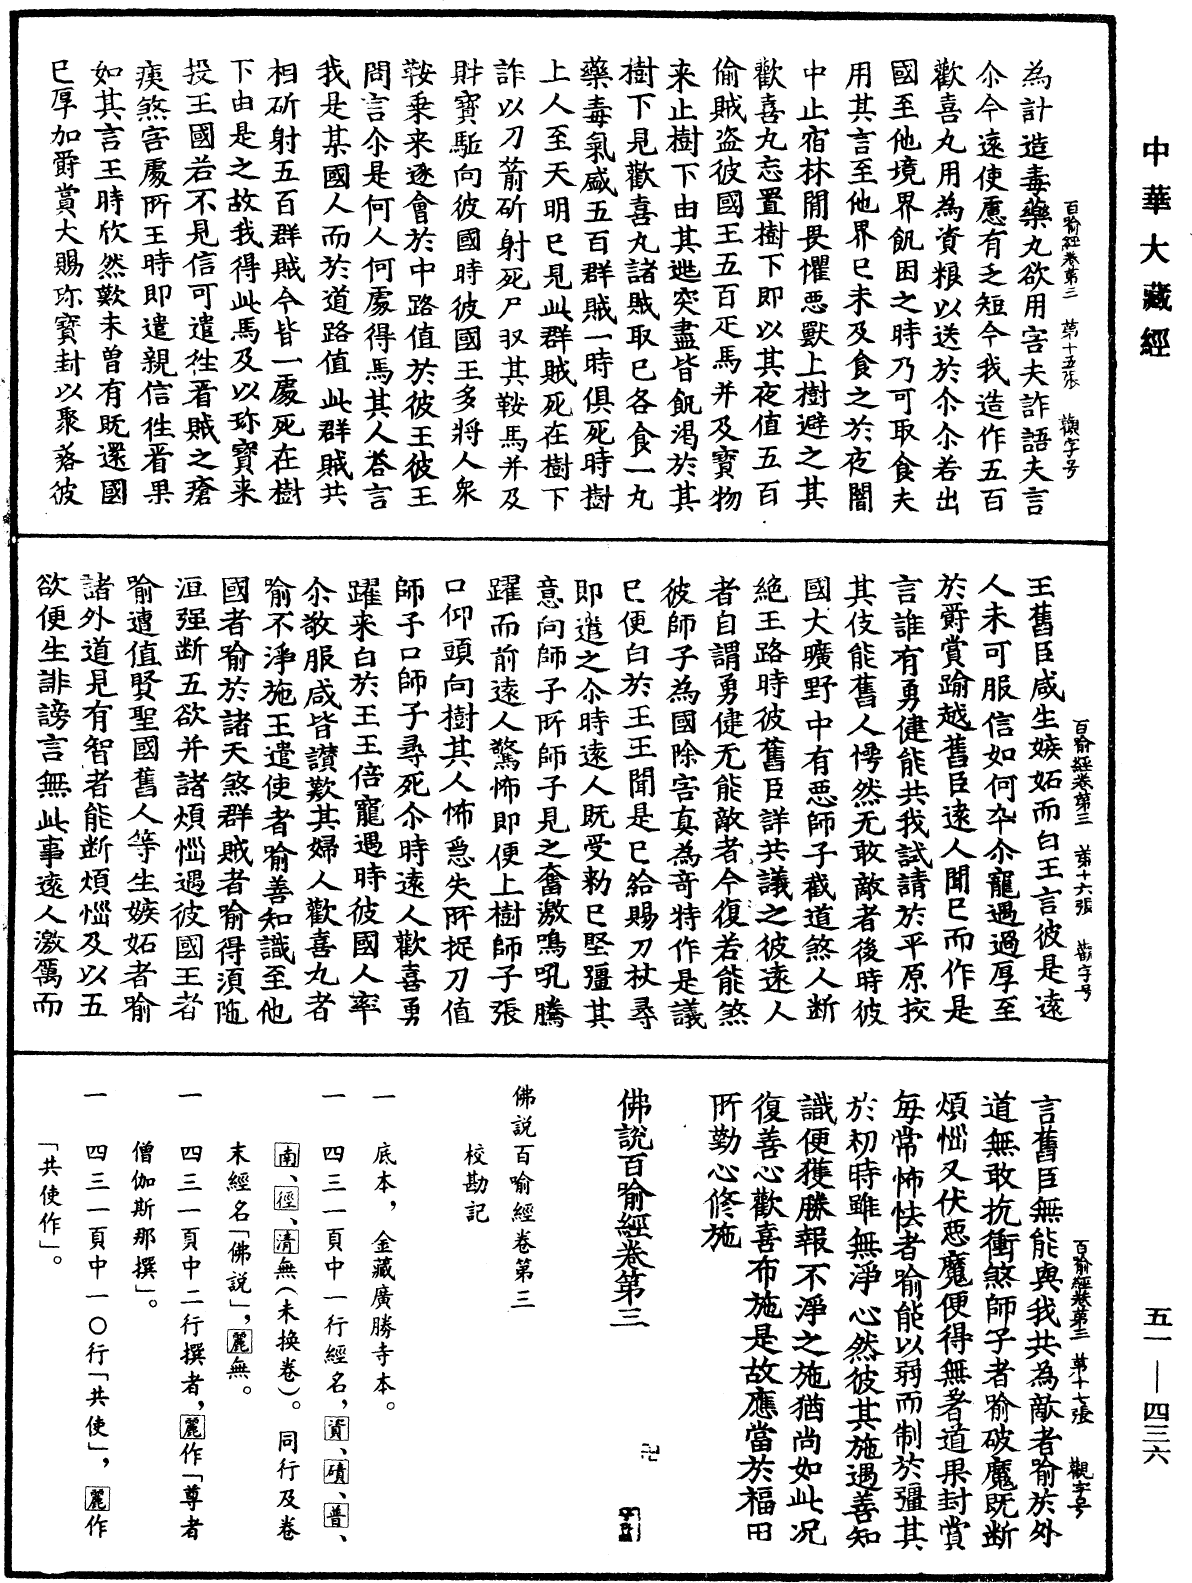 中華大藏經
五一—四三六
百喻經卷第三 第十五張 觀字号
為計造毒藥丸欲用害夫詐語夫言
尒今遠使慮有乏短今我造作五百
歡喜丸用為資粮以送於尒尒若出
國至他境界飢困之時乃可取食夫
用其言至他界已未及食之於夜闇
中止宿林間畏懼惡獸上樹避之其
歡喜丸忘置樹下即以其夜值五百
偷賊盗彼國王五百疋馬并及寶物
来止樹下由其逃突盡皆飢渴於其
樹下見歡喜丸諸賊取已各食一丸
藥毒氣盛五百群賊一時俱死時樹
上人至天明已見此群賊死在樹下
詐以刀箭斫射死尸収其鞍馬并及
財寶駈向彼國時彼國王多將人衆
鞍乗来逐會於中路值於彼王彼王
問言尒是何人何處得馬其人荅言
我是某國人而於道路值此群賊共
相斫射五百群賊今皆一處死在樹
下由是之故我得此馬及以珎寶来
投王國若不見信可遣徃看賊之瘡
痍煞害處所王時即遣親信徃看果
如其言王時欣然歎未曽有既還國
已厚加爵賞大賜珎寶封以聚落彼
百喻經卷第三 第十六張 觀字号
王舊臣咸生嫉妬而白王言彼是遠
人未可服信如何卒尒寵遇過厚至
於爵賞踰越舊臣遠人聞已而作是
言誰有勇健能共我試請於平原挍
其伎能舊人愕然无敢敵者後時彼
國大曠野中有惡師子截道煞人断
絶王路時彼舊臣詳共議之彼遠人
者自謂勇健无能敵者今復若能煞
彼師子為國除害真為竒特作是議
已便白於王王聞是已給賜刀杖尋
即遣之尒時遠人既受勑已堅彊其
意向師子所師子見之奮激鳴吼騰
躍而前遠人驚怖即便上樹師子張
口仰頭向樹其人怖急失所捉刀值
師子口師子尋死尒時遠人歡喜勇
躍来白於王王倍寵遇時彼國人率
尒敬服咸皆讃歎其婦人歡喜丸者
喻不淨施王遣使者喻善知識至他
國者喻於諸天煞群賊者喻得湏陁
洹强断五欲并諸煩惱遇彼國王者
喻遭值賢聖國舊人等生嫉妬者喻
諸外道見有智者能断煩惱及以五
欲便生誹謗言無此事遠人激厲而
百喻經卷第三 第十七張 觀字号
言舊臣無能與我共為敵者喻於外
道無敢抗衝煞師子者喻破魔既断
煩惱又伏惡魔便得無著道果封賞
每常怖怯者喻能以弱而制於彊其
於初時雖無淨心然彼其施遇善知
識便獲勝報不淨之施猶尚如此况
復善心歡喜布施是故應當於福田
所勤心修施
佛說百喻經卷第三
卍
佛說百喻經卷第三
校勘記
一 底本，金藏廣勝寺本。
一 四三一頁中一行經名，資、磧、普、
南、徑、清無（未換卷）。同行及卷
末經名「佛說」，麗無。
一 四三一頁中二行撰者，麗作「尊者
僧伽斯那撰」。
一 四三一頁中一〇行「共使」，麗作
「共使作」。